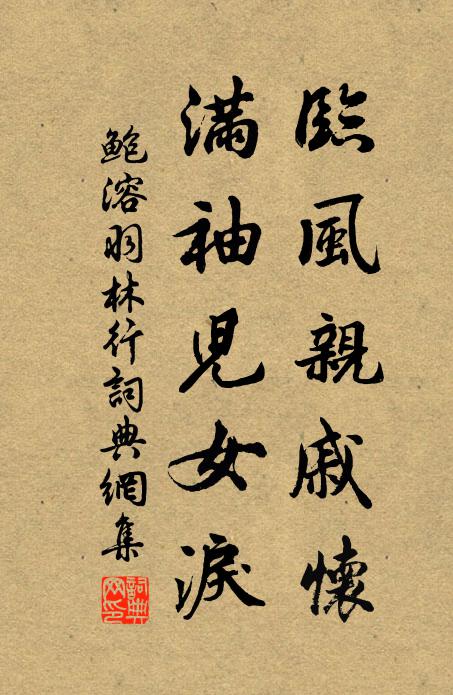 臨風親戚懷
滿袖兒女淚
鮑溶羽林行詞典網集
詞典網印